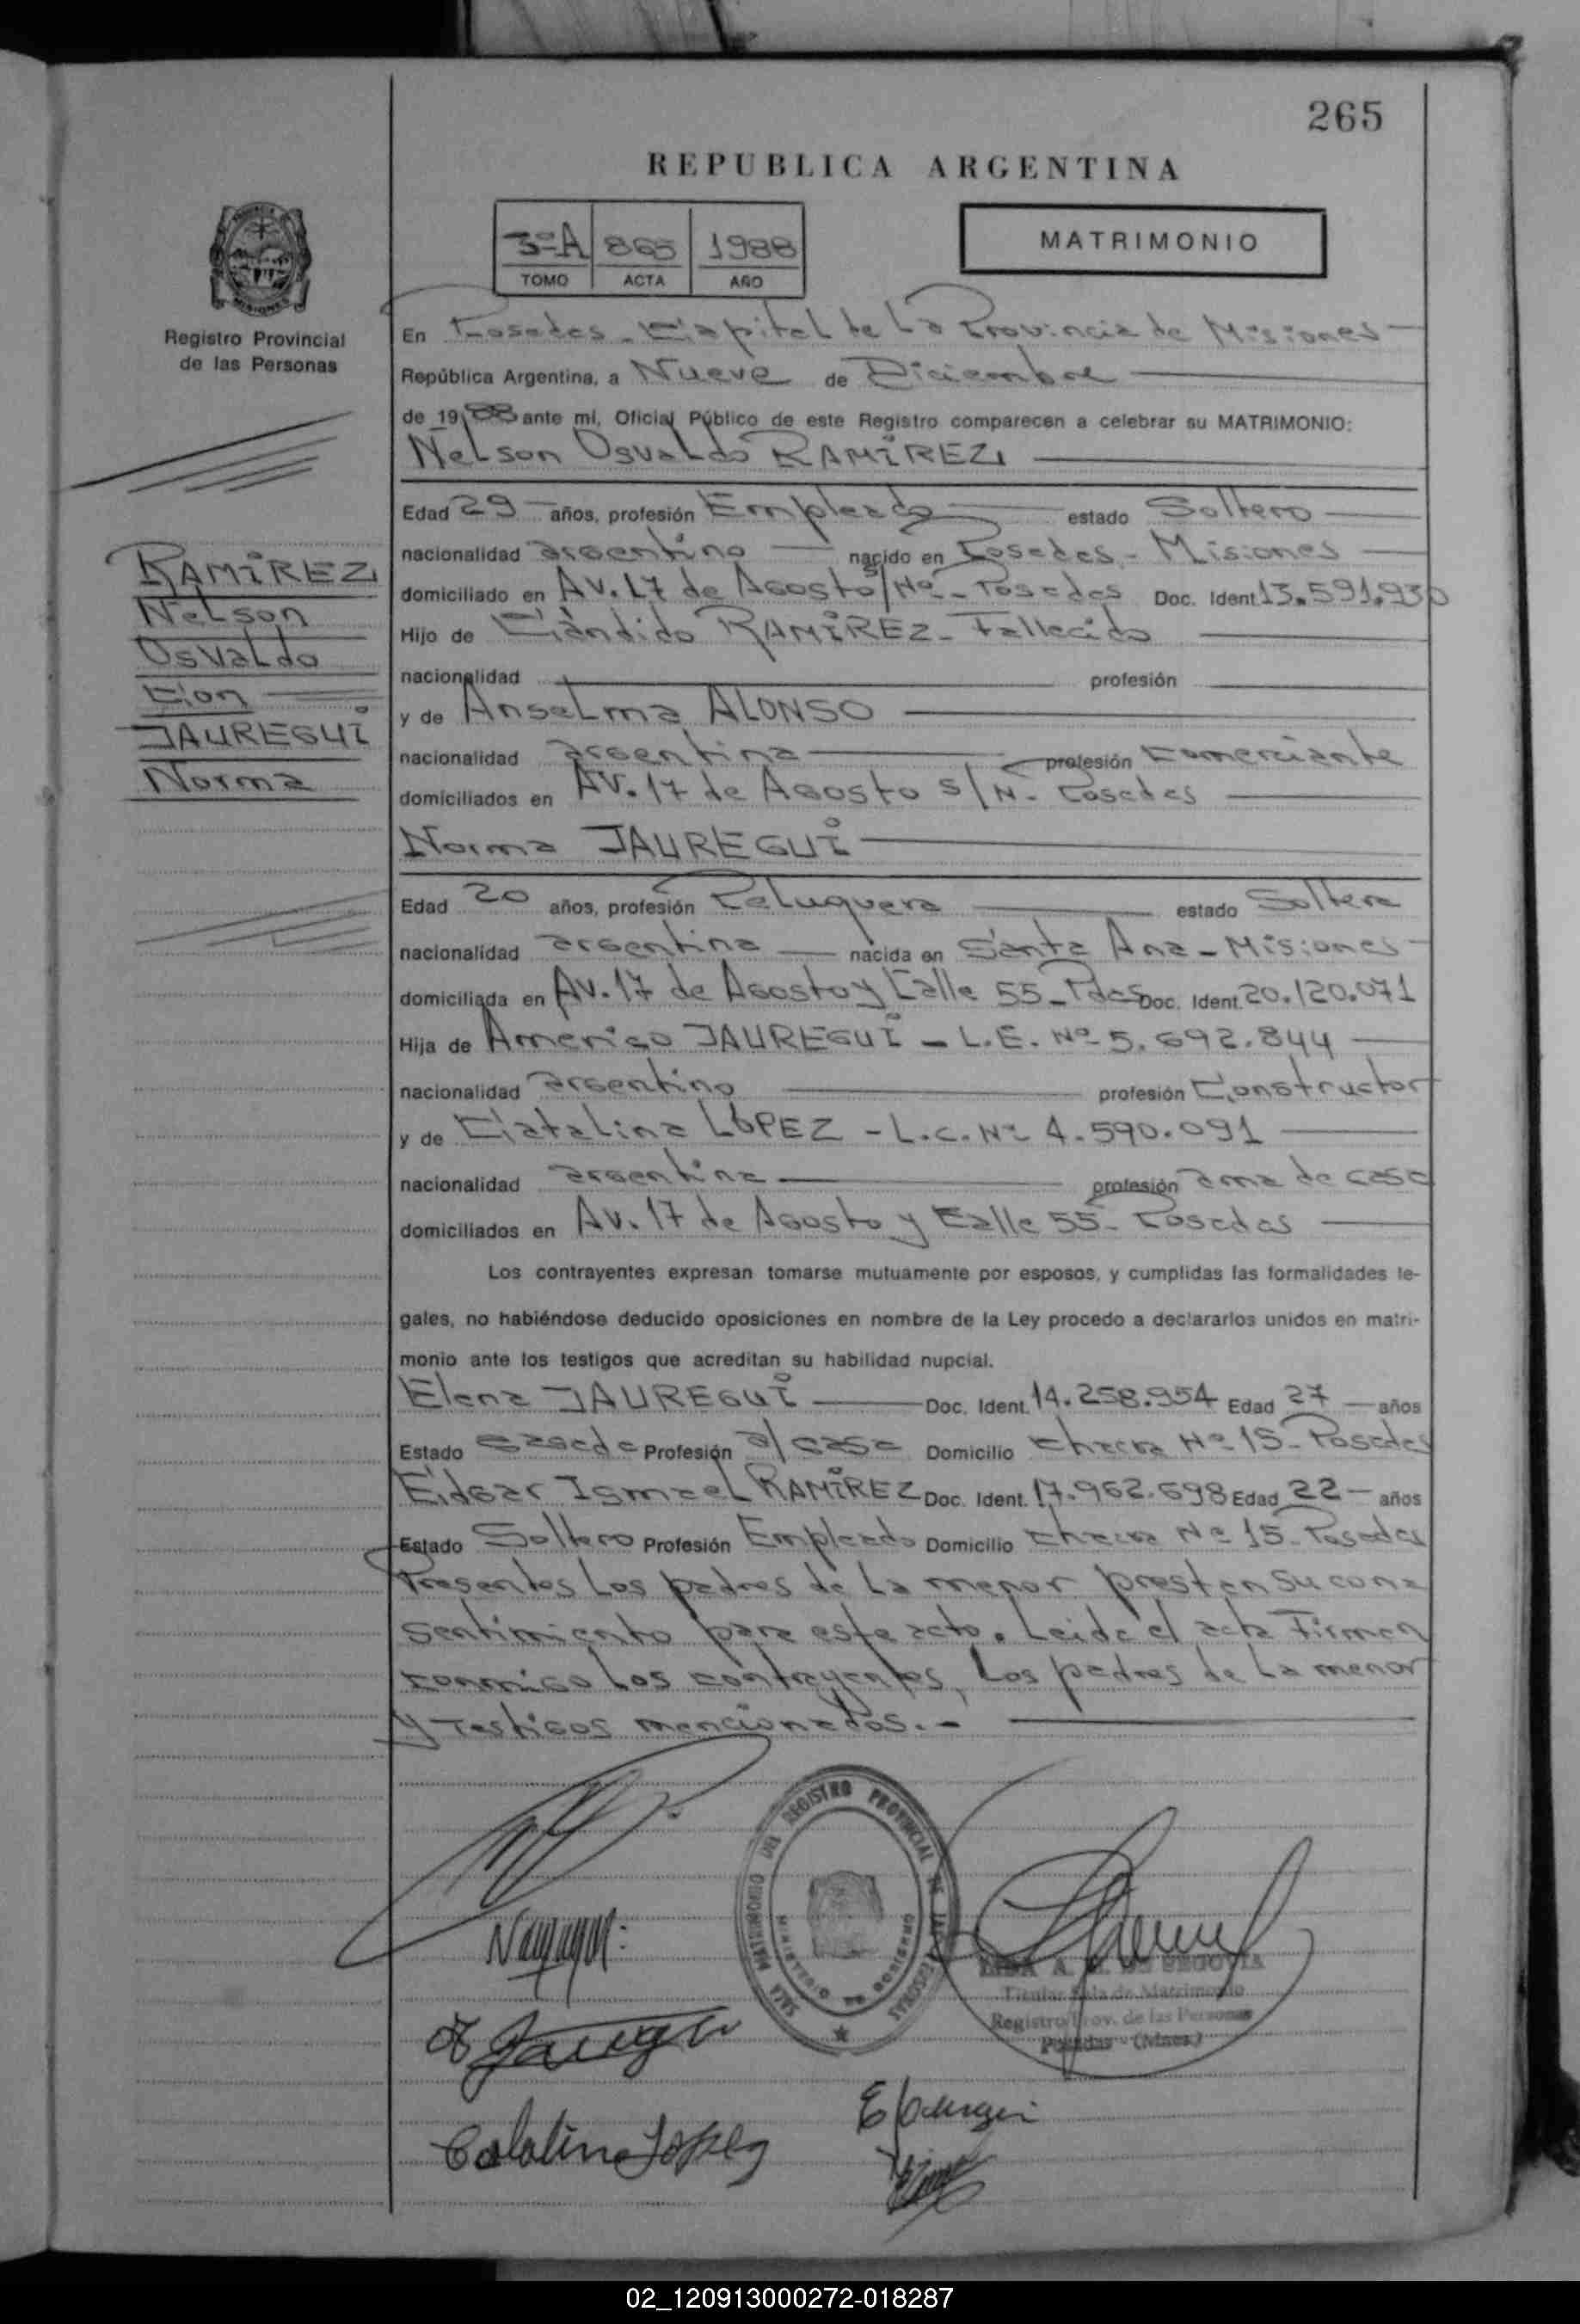 265
REPUBLICA ARGENTINA
3ºA 865 1988
TOMO ACTA AÑO
MATRIMONIO
Registro Provincial
de las Personas
En Posadas, Capital de La Provincia de Misiones
República Argentina, a Nueve de Diciembre
de 1988 ante mí, Oficial Público de este Registro comparecen a celebrar su MATRIMONIO:
Nelson Osvaldo RAMÍREZ
Edad 29 años, profesión Empleado estado Soltero
nacionalidad argentino nacido en Posadas - Misiones
domiciliado en AV. 17 de Agosto s/Nº - Posadas Doc. Ident. 13.591.930
Hijo de Cándido RAMÍREZ - Fallecido
nacionalidad profesión
y de Anselma ALONSO
nacionalidad argentina profesión Comerciante
domiciliados en AV. 17 de Agosto s/N - Posadas
Norma JAUREGUI
Edad 20 años, profesión Peluquera estado Soltera
nacionalidad argentina nacida en Santa Ana - Misiones
domiciliada en AV. 17 de Agosto y Calle 55 - Pdas Doc. Ident. 20.120.071
Hija de Amerigo JAUREGUI - L.E. Nº 5.692.844
nacionalidad argentino profesión Constructor
y de Catalina LÓPEZ - L.C. Nº 4.590.091
nacionalidad argentina profesión ama de casa
domiciliados en AV. 17 de Agosto y Calle 55 - Posadas
Los contrayentes expresan tomarse mutuamente por esposos, y cumplidas las formalidades le-
gales, no habiéndose deducido oposiciones en nombre de la Ley procedo a declararlos unidos en matri-
monio ante los testigos que acreditan su habilidad nupcial.
Elena JAUREGUI Doc. Ident. 14.258.954 Edad 27 años
Estado casada Profesión a/casa Domicilio Chacra Nº 15 - Posadas
Edgar Ismael RAMÍREZ Doc. Ident. 17.962.698 Edad 22 años
Estado Soltero Profesión Empleado Domicilio Chacra Nº 15 - Posadas
Presentes Los padres de La menor prestan su con=
sentimiento para este acto. Leida el acta Firman
conmigo Los contrayentes, Los padres de La menor
y Testigos mencionados.-
RAMÍREZ
Nelson
Osvaldo
Con
JAUREGUI
Norma
SALA MATRIMONIO DEL REGISTRO PROVINCIAL DE LAS PERSONAS
MINISTERIO DE GOBIERNO
DE SEGOVIA
Titular Sala de Matrimonio
Registro Prov. de las Personas
Posadas - (Mnes.)
Catalina Lopez
02_120913000272-018287